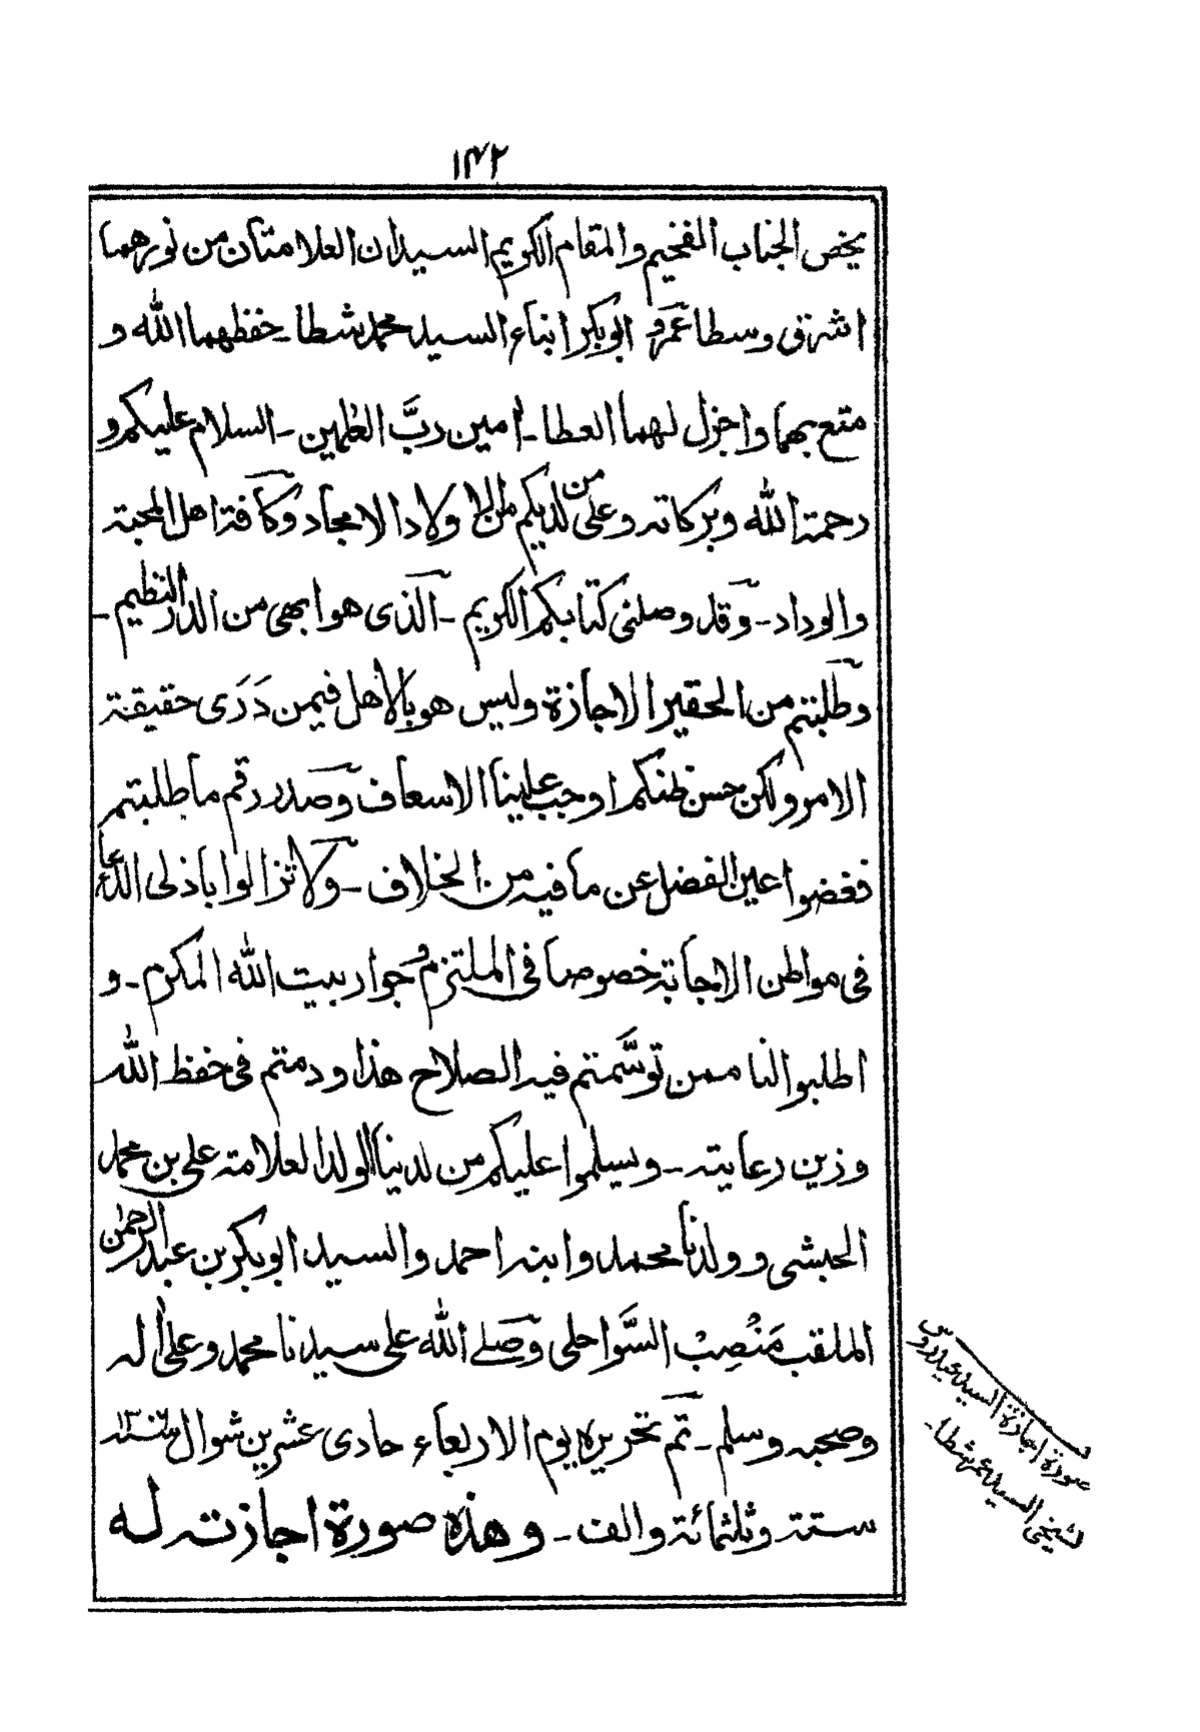 ١٤٢
يخص الجناب الفخيم والمقام الكريم السيدان العلامتان من نورهما
اشرق وسطا عمر و ابوبكر ابناء السيد محمد شطا ـ حفظهما الله و
متع بهما واجزل لهما العطا ـ اٰمين ربَّ العٰلمين ـ السلام عليكم و
رحمة الله وبركاته وعلى من لديكم من الاولاد الامجاد وكافة اهل المحبة
والوداد ـ وقد وصلنى كتابكم الكريم ـ الذى هو ابهى من الدر النظيم ـ
وطلبتم من الحقير الاجازة وليس هو بالاهل فيمن دَرَى حقيقة
الامر ولكن حسن ظنكم اوجب علينا الاسعاف وصدر رقم ما طلبتم
فغضوا عين الفضل عن ما فيه من الخلاف ـ ولا تزالوا باذلى الدعاء
فى مواطن الاجابة خصوصا فى الملتزم و جوار بيت الله المكرم ـ و
اطلبوا لنا ممن توسَّمتم فيه الصلاح هذا ودمتم فى حفظ الله
وزين رعايته ـ ويسلموا عليكم من لدينا الولد العلامة على بن محمد
الحبشى وولدنا محمد وابنه احمد والسيد ابوبكر بن عبد الرحمٰن
الملقب مَنْصِبْ السَّواحلى وصلے الله على سيدنا محمد وعلى اٰله
وصحبه وسلم ـ تم تحريره يوم الاربعاء حادى عشرين شوال سنة ١٣٠٦
ستة وثلثمائة والف ـ وهذه صورة اجازته له
صورة اجازة السيد عيدروس
لشيخى السيد عمر شطا ـ